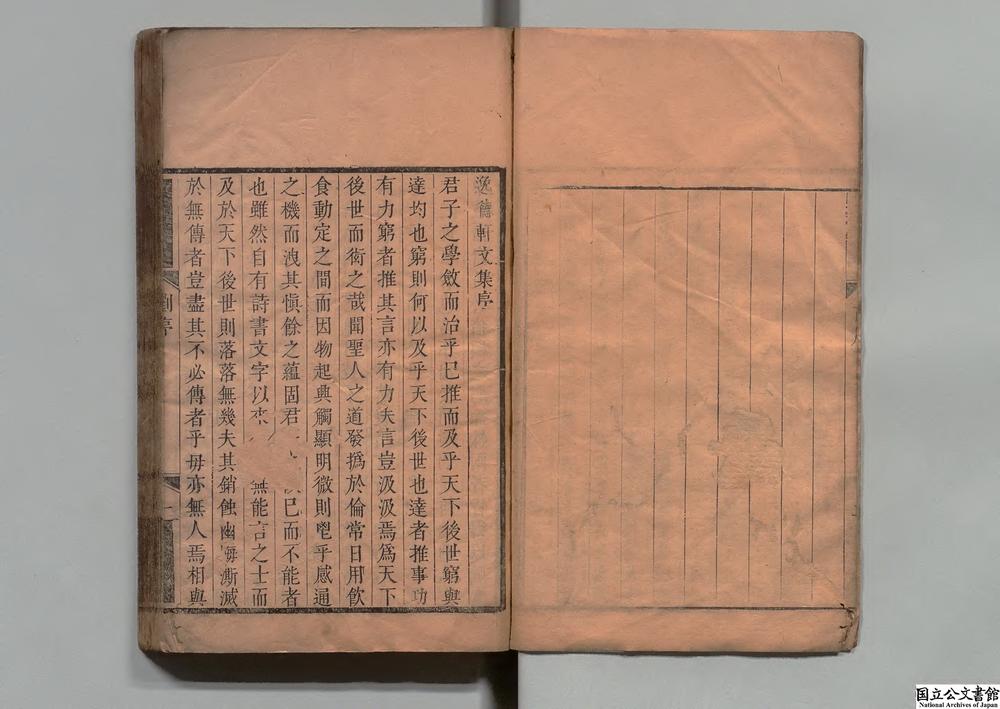 逸德軒文集序
君子之學斂而治乎已推而及乎天下後世窮與
達均也窮則何以及乎天下後世也達者推事功
有力窮者推其言亦有力夫言豈汲汲焉爲天下
後世而衒之哉聞聖人之道發撝於倫常日用飲
食動定之間而因物起興觸顯明微則鬯乎感通
之機而洩其慎餘之蘊固君已而不能者
也雖然自有詩書文字以來無能言之士而
及於天下後世則落落無幾夫其銷蝕幽晦澌滅
於無傳者豈盡其不必傳者乎毋亦無人焉相與
劉序
一
国立公文書館
National Archives of Japan